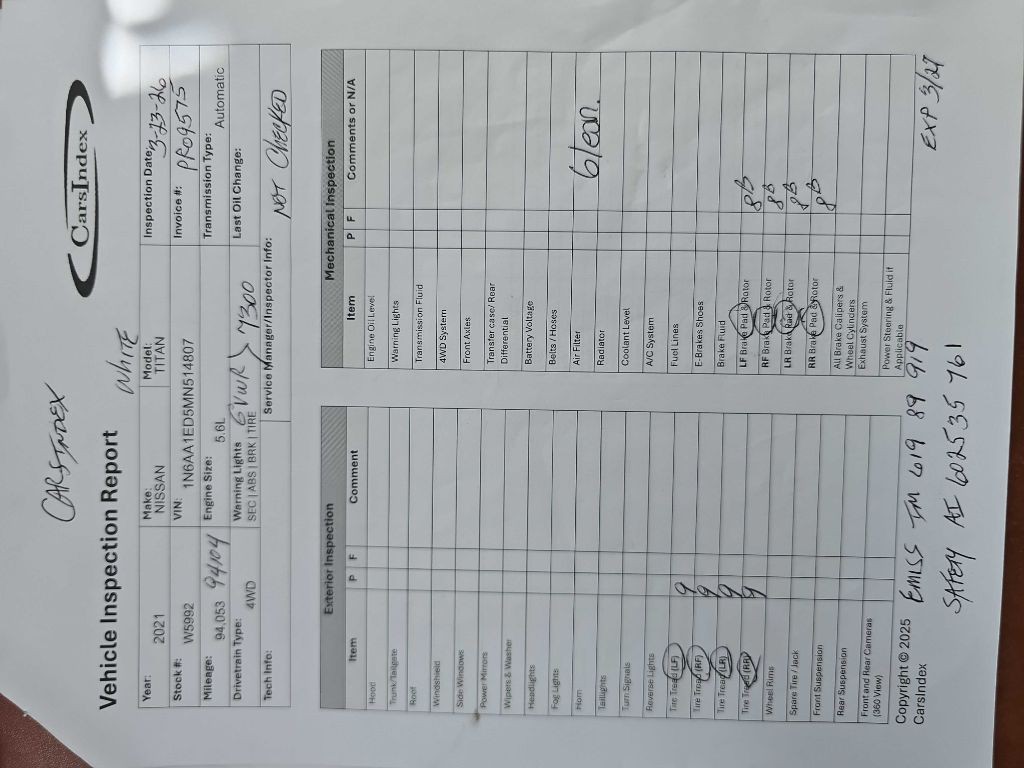 CARSINDEX
CarsIndex
WHITE
Vehicle Inspection Report
Year: 2021 Make: NISSAN Model: TITAN Inspection Date: 3-23-26
Stock #: W5992 VIN: 1N6AA1ED5MN514807 Invoice #: PR09575
Mileage: 94,053 94104 Engine Size: 5.6L Transmission Type: Automatic
Drivetrain Type: 4WD Warning Lights SEC | ABS | BRK | TIRE GVWR > 7300 Last Oil Change:
Tech Info: Service Manager/Inspector Info: NOT CHECKED
Exterior Inspection
Item P F Comment
Hood
Trunk/Tailgate
Roof
Windshield
Side Windows
Power Mirrors
Wipers & Washer
Headlights
Fog Lights
Horn
Taillights
Turn Signals
Reverse Lights
Tire Tread (LF) 9
Tire Tread (RF) 9
Tire Tread (LR) 9
Tire Tread (RR) 9
Wheel Rims
Spare Tire / Jack
Front Suspension
Rear Suspension
Front and Rear Cameras
(360 View)
Mechanical Inspection
Item P F Comments or N/A
Engine Oil Level
Warning Lights
Transmission Fluid
4WD System
Front Axles
Transfer case/ Rear
Differential
Battery Voltage
Belts / Hoses
Air Filter
Radiator
Coolant Level
A/C System
Fuel Lines
E-Brakes Shoes
Brake Fluid
LF Brake Pad & Rotor 8B
RF Brake Pad & Rotor 8B
LR Brake Pad & Rotor 8B
RR Brake Pad & Rotor 8B
All Brake Calipers &
Wheel Cylinders
Exhaust System
Power Steering & Fluid if
Applicable
Copyright © 2025
CarsIndex
EMISS IM 619 89 919 EXP 3/27
SAFETY AI 602535 761